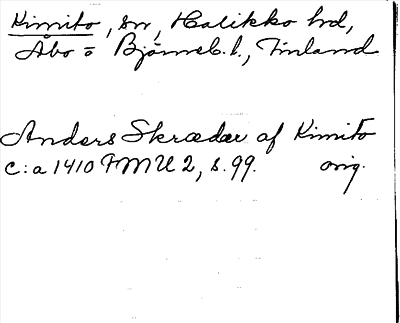 Kimito, sn, Halikko hd,
Åbo o Björneb. l., Finland
Anders Skrædær af Kimito
c:a 1410 FMU 2, s. 99. orig.